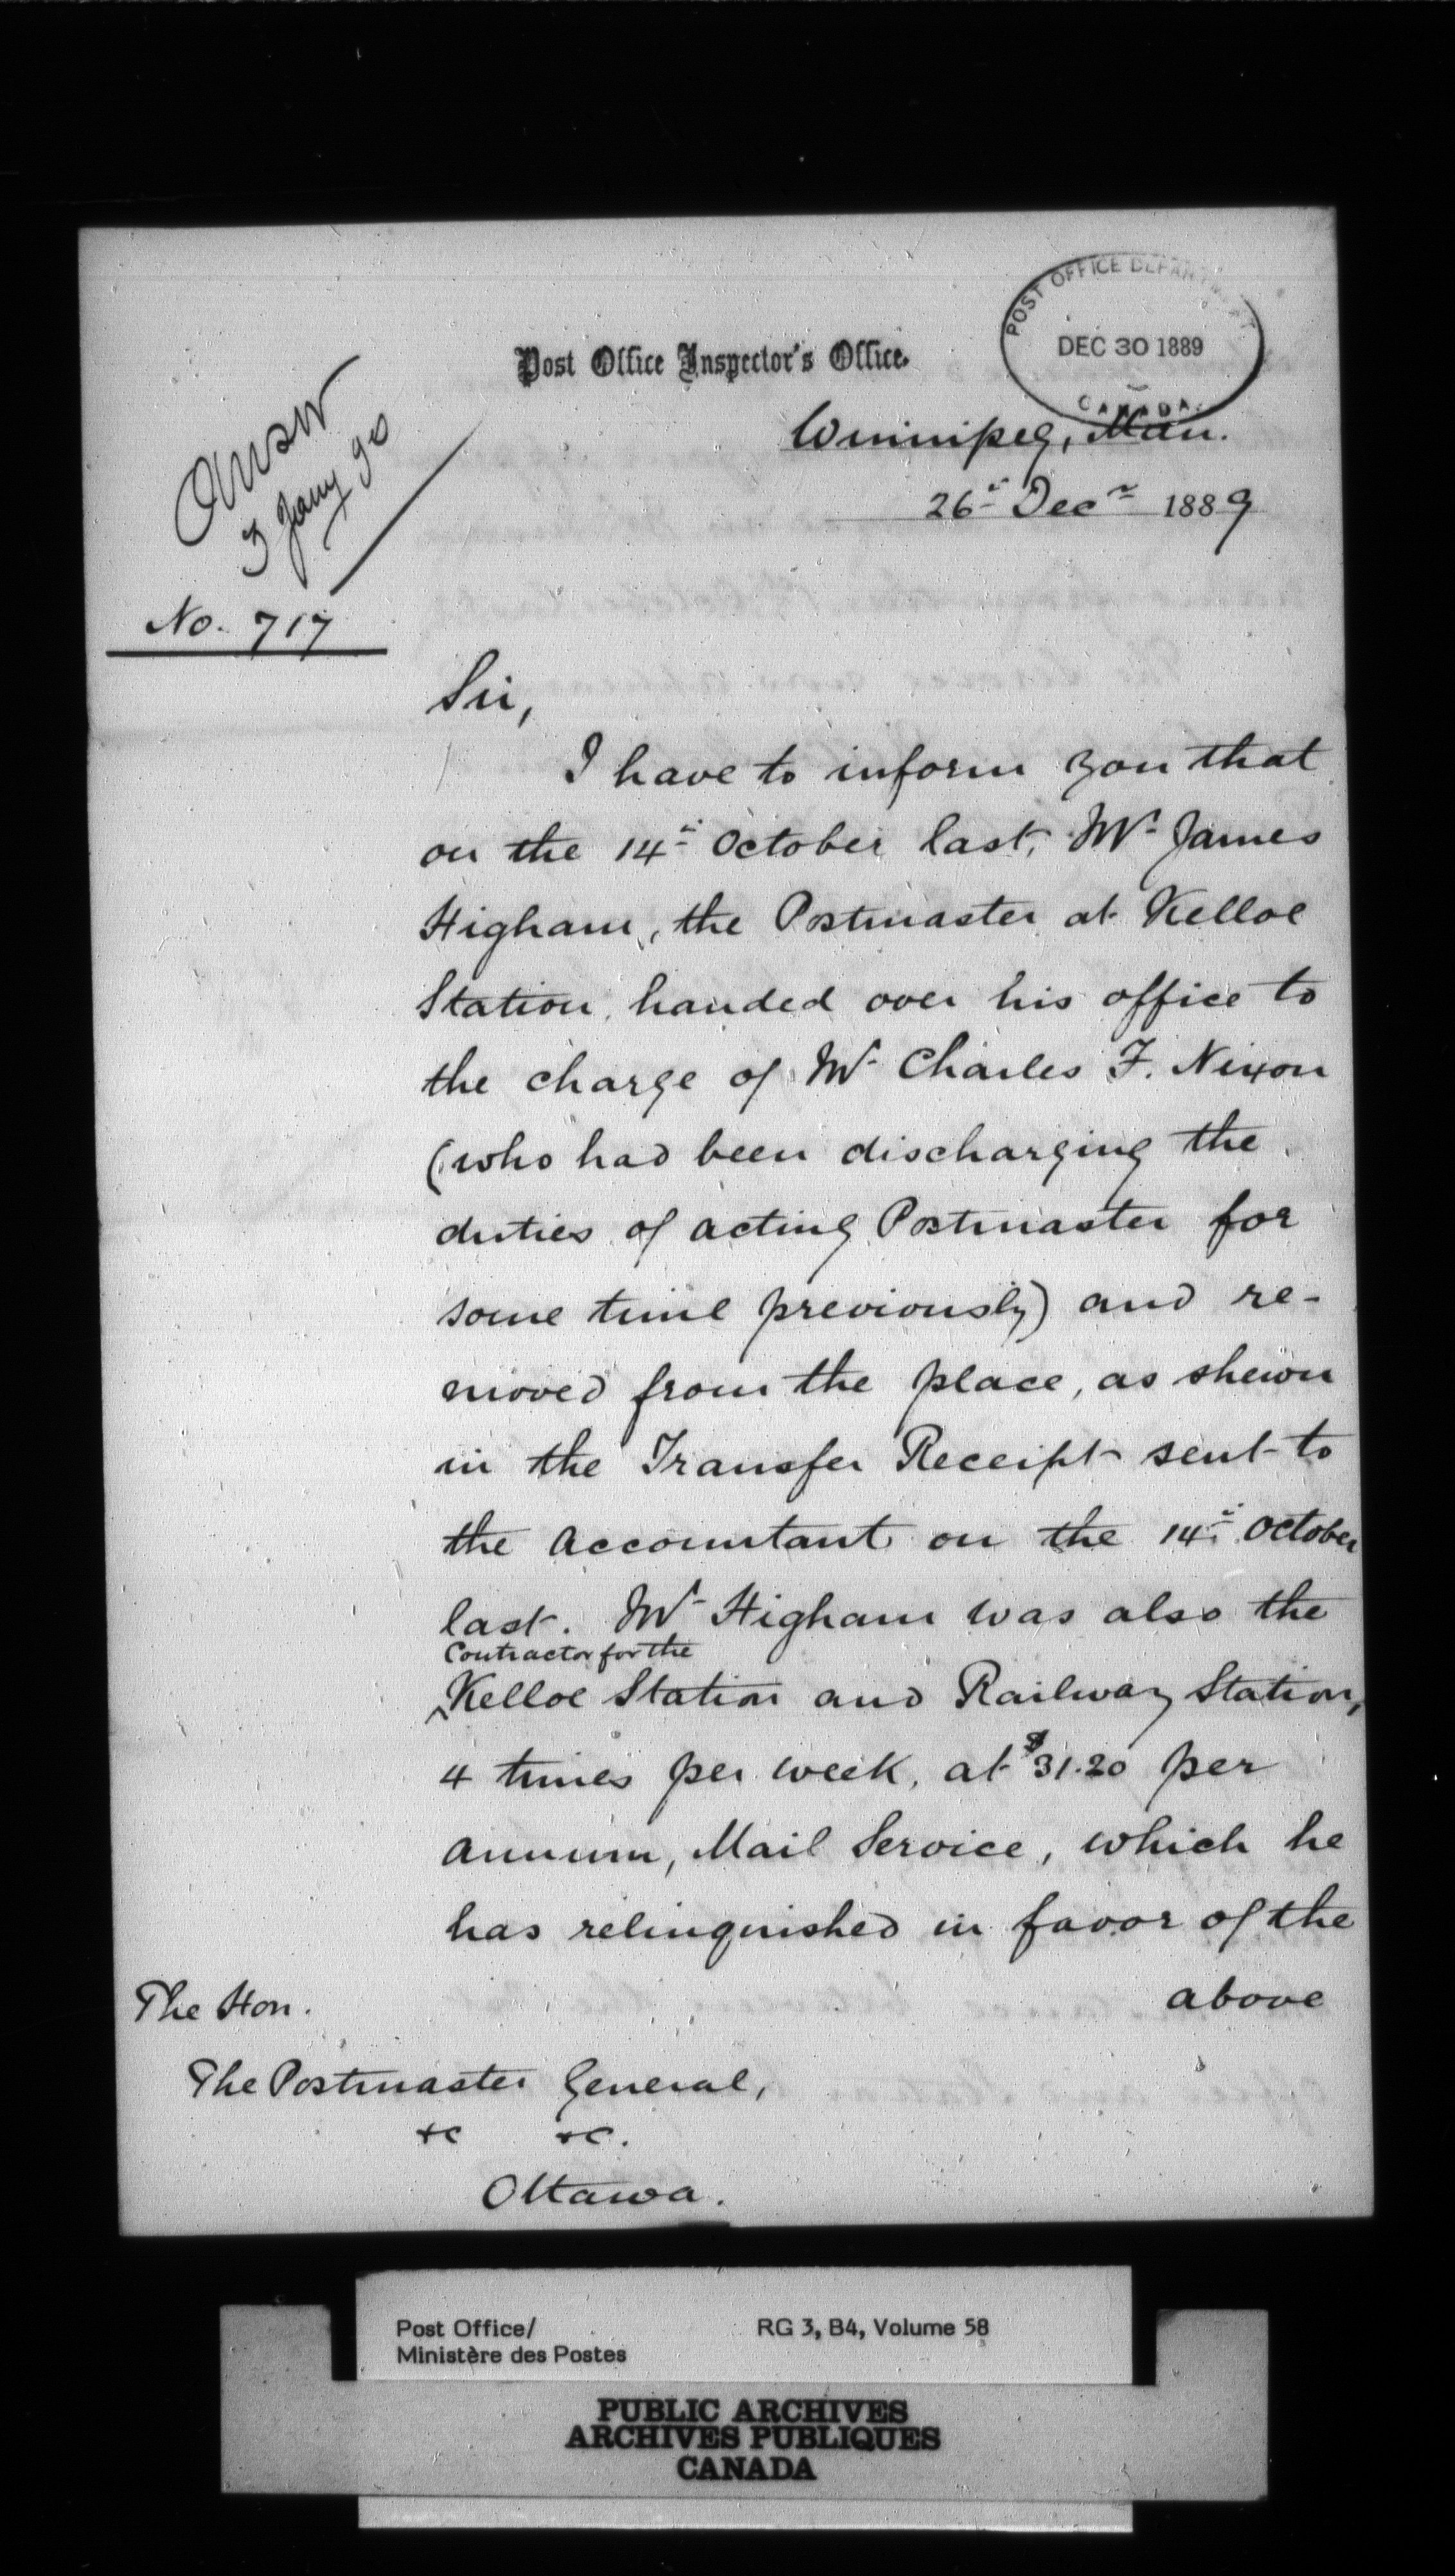 POST OFFICE DEPARTMENT
DEC 30 1889
CANADA.
Post Office Inspector's Office.
Winnipeg, Man.
26th Decr 1889
Answd
3 Jany 90
No. 717
Sir,
I have to inform you that
on the 14th October last, Mr James
Higham, the Postmaster at Kelloe
Station, handed over his office to
the charge of Mr Charles F. Nixon
(who had been discharging the
duties of acting Postmaster for
some time previously) and re-
moved from the place, as shewn
in the Transfer Receipt sent to
the Accountant on the 14th October
last. Mr Higham was also the
Contractor for the
Kelloe Station and Railway Station,
4 times per week, at $31.20 per
annum, Mail Service, which he
has relinquished in favor of the
above
The Hon.
The Postmaster General,
&c &c.
Ottawa.
Post Office/
Ministère des Postes
RG 3, B4, Volume 58
PUBLIC ARCHIVES
ARCHIVES PUBLIQUES
CANADA